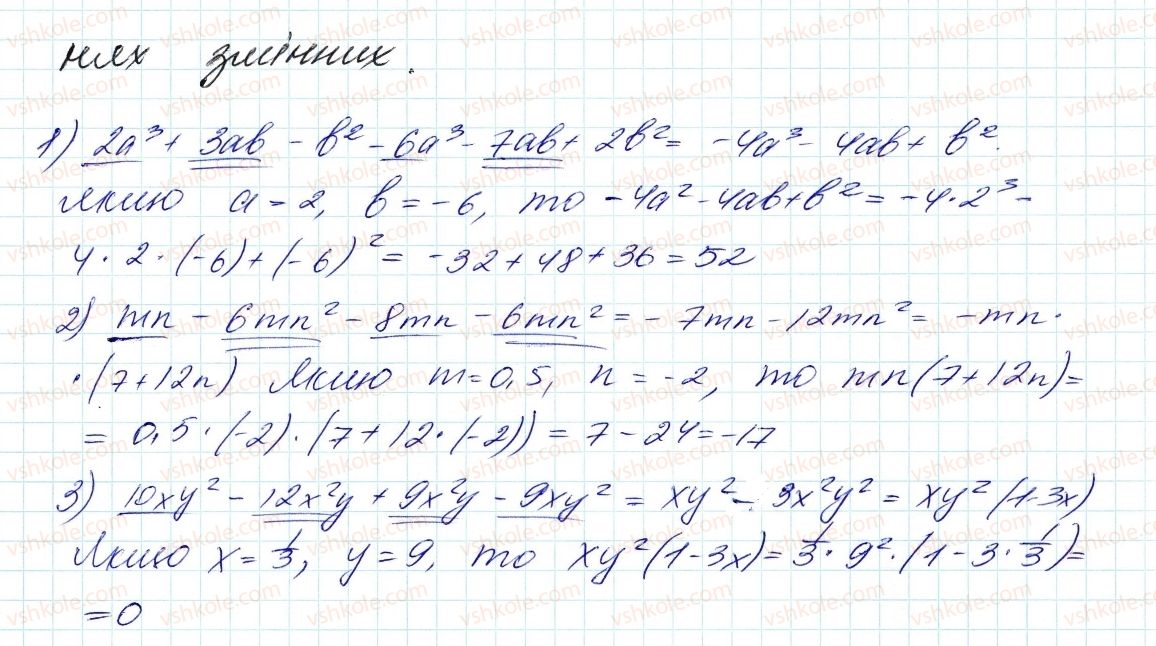 нях змінних.
1) 2a³ + 3ab - b² - 6a³ - 7ab + 2b² = -4a³ - 4ab + b².
Якщо a = 2, b = -6, то -4a² - 4ab + b² = -4·2³ -
4·2·(-6)+(-6)² = -32 + 48 + 36 = 52
2) mn - 6mn² - 8mn - 6mn² = -7mn - 12mn² = -mn·
·(7+12n) Якщо m=0,5, n = -2, то mn(7+12n)=
= 0,5·(-2)·(7+12·(-2)) = 7 - 24 = -17
3) 10xy² - 12x²y + 9x²y - 9xy² = xy² - 3x²y² = xy²(1-3x)
Якщо x = 1/3, y = 9, то xy²(1-3x) = 1/3·9²·(1-3·1/3)=
= 0